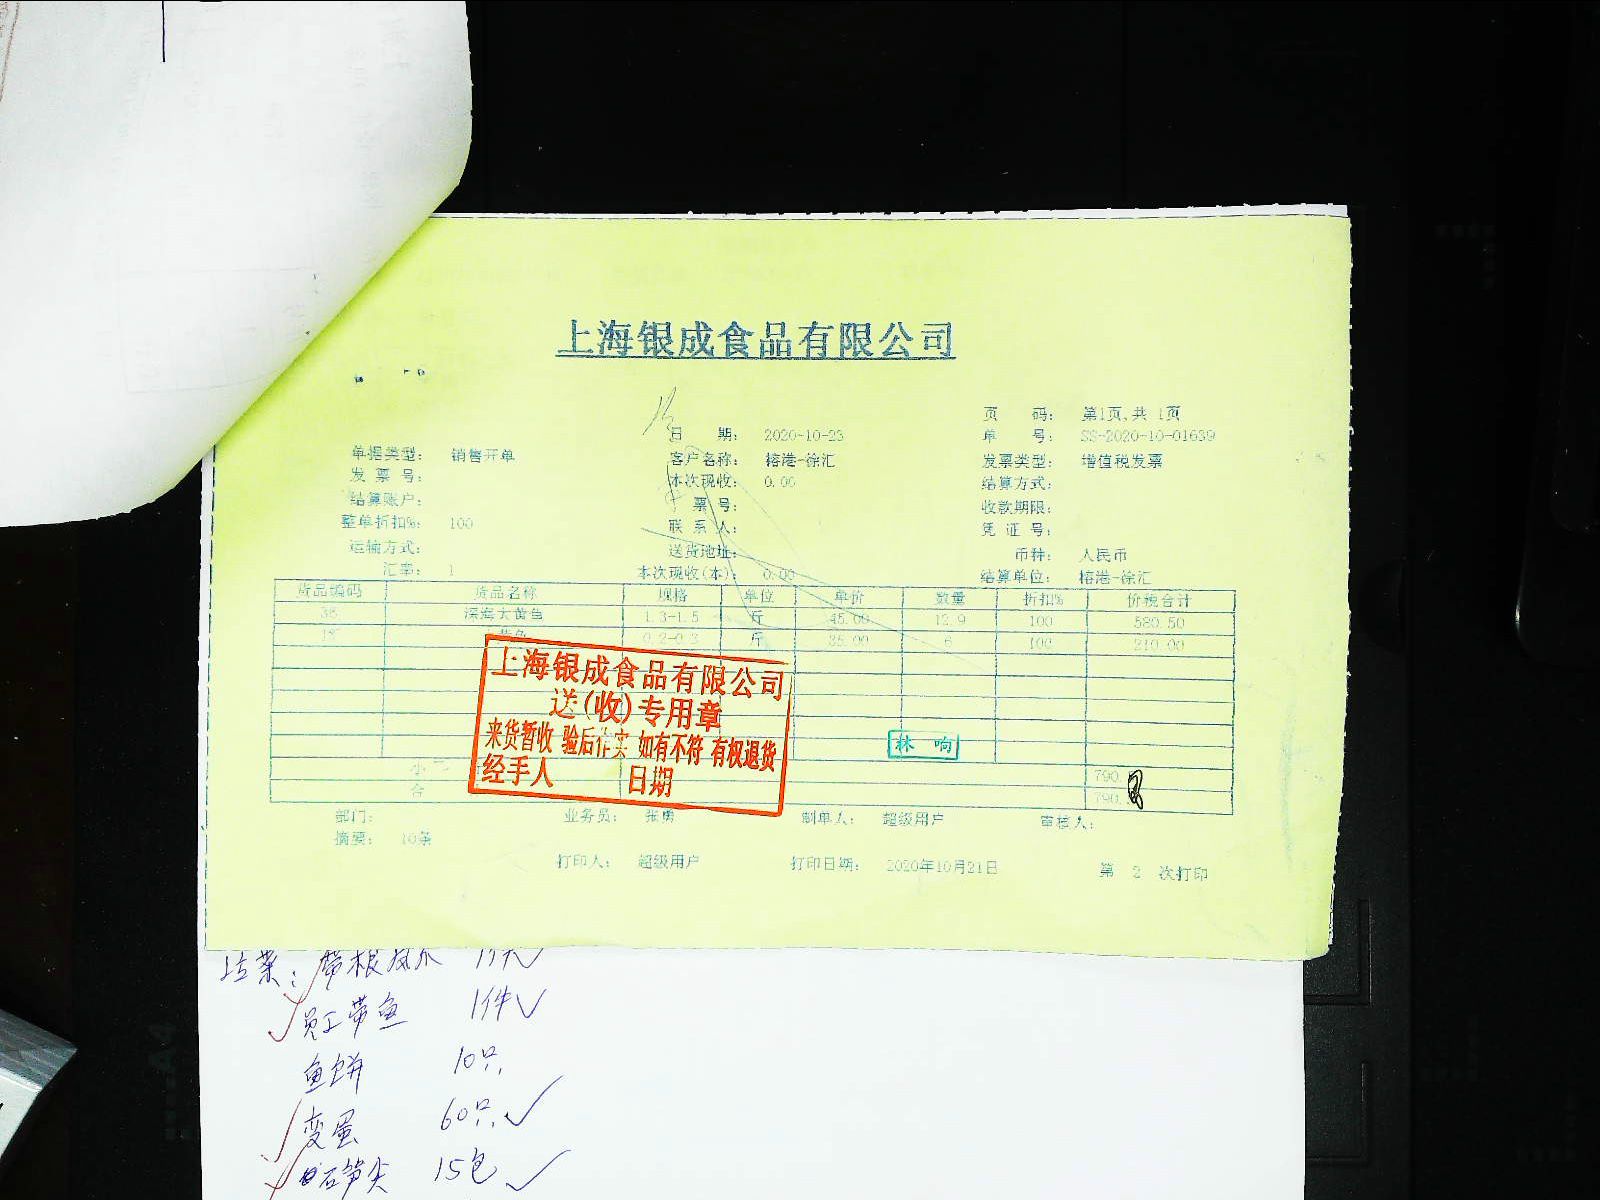 上海银成食品有限公司
页 码: 第1页,共 1页
日 期: 2020-10-23 单 号: SS-2020-10-01639
单据类型: 销售开单 客户名称: 榕港-徐汇 发票类型: 增值税发票
发 票 号: 本次现收: 0.00 结算方式:
结算账户: 票 号: 收款期限:
整单折扣%: 100 联 系 人: 凭 证 号:
运输方式: 送货地址: 币种: 人民币
汇率: 1 本次现收(本): 0.00 结算单位: 榕港-徐汇
货品编码 货品名称 规格 单位 单价 数量 折扣% 价税合计
38 深海大黄鱼 1.3-1.5 斤 45.00 12.9 100 580.50
鱼 0.2-0.3 斤 35.00 6 100 210.00
上海银成食品有限公司
送(收)专用章
来货暂收 验后作实 如有不符 有权退货
经手人 日期
林 响
小 790.
合 790.
部门: 业务员: 张勇 制单人: 超级用户 审核人:
摘要: 10条
打印人: 超级用户 打印日期: 2020年10月21日 第 2 次打印
员工带鱼 1件✓
鱼饼 10只
变蛋 60只✓
笋尖 15包✓